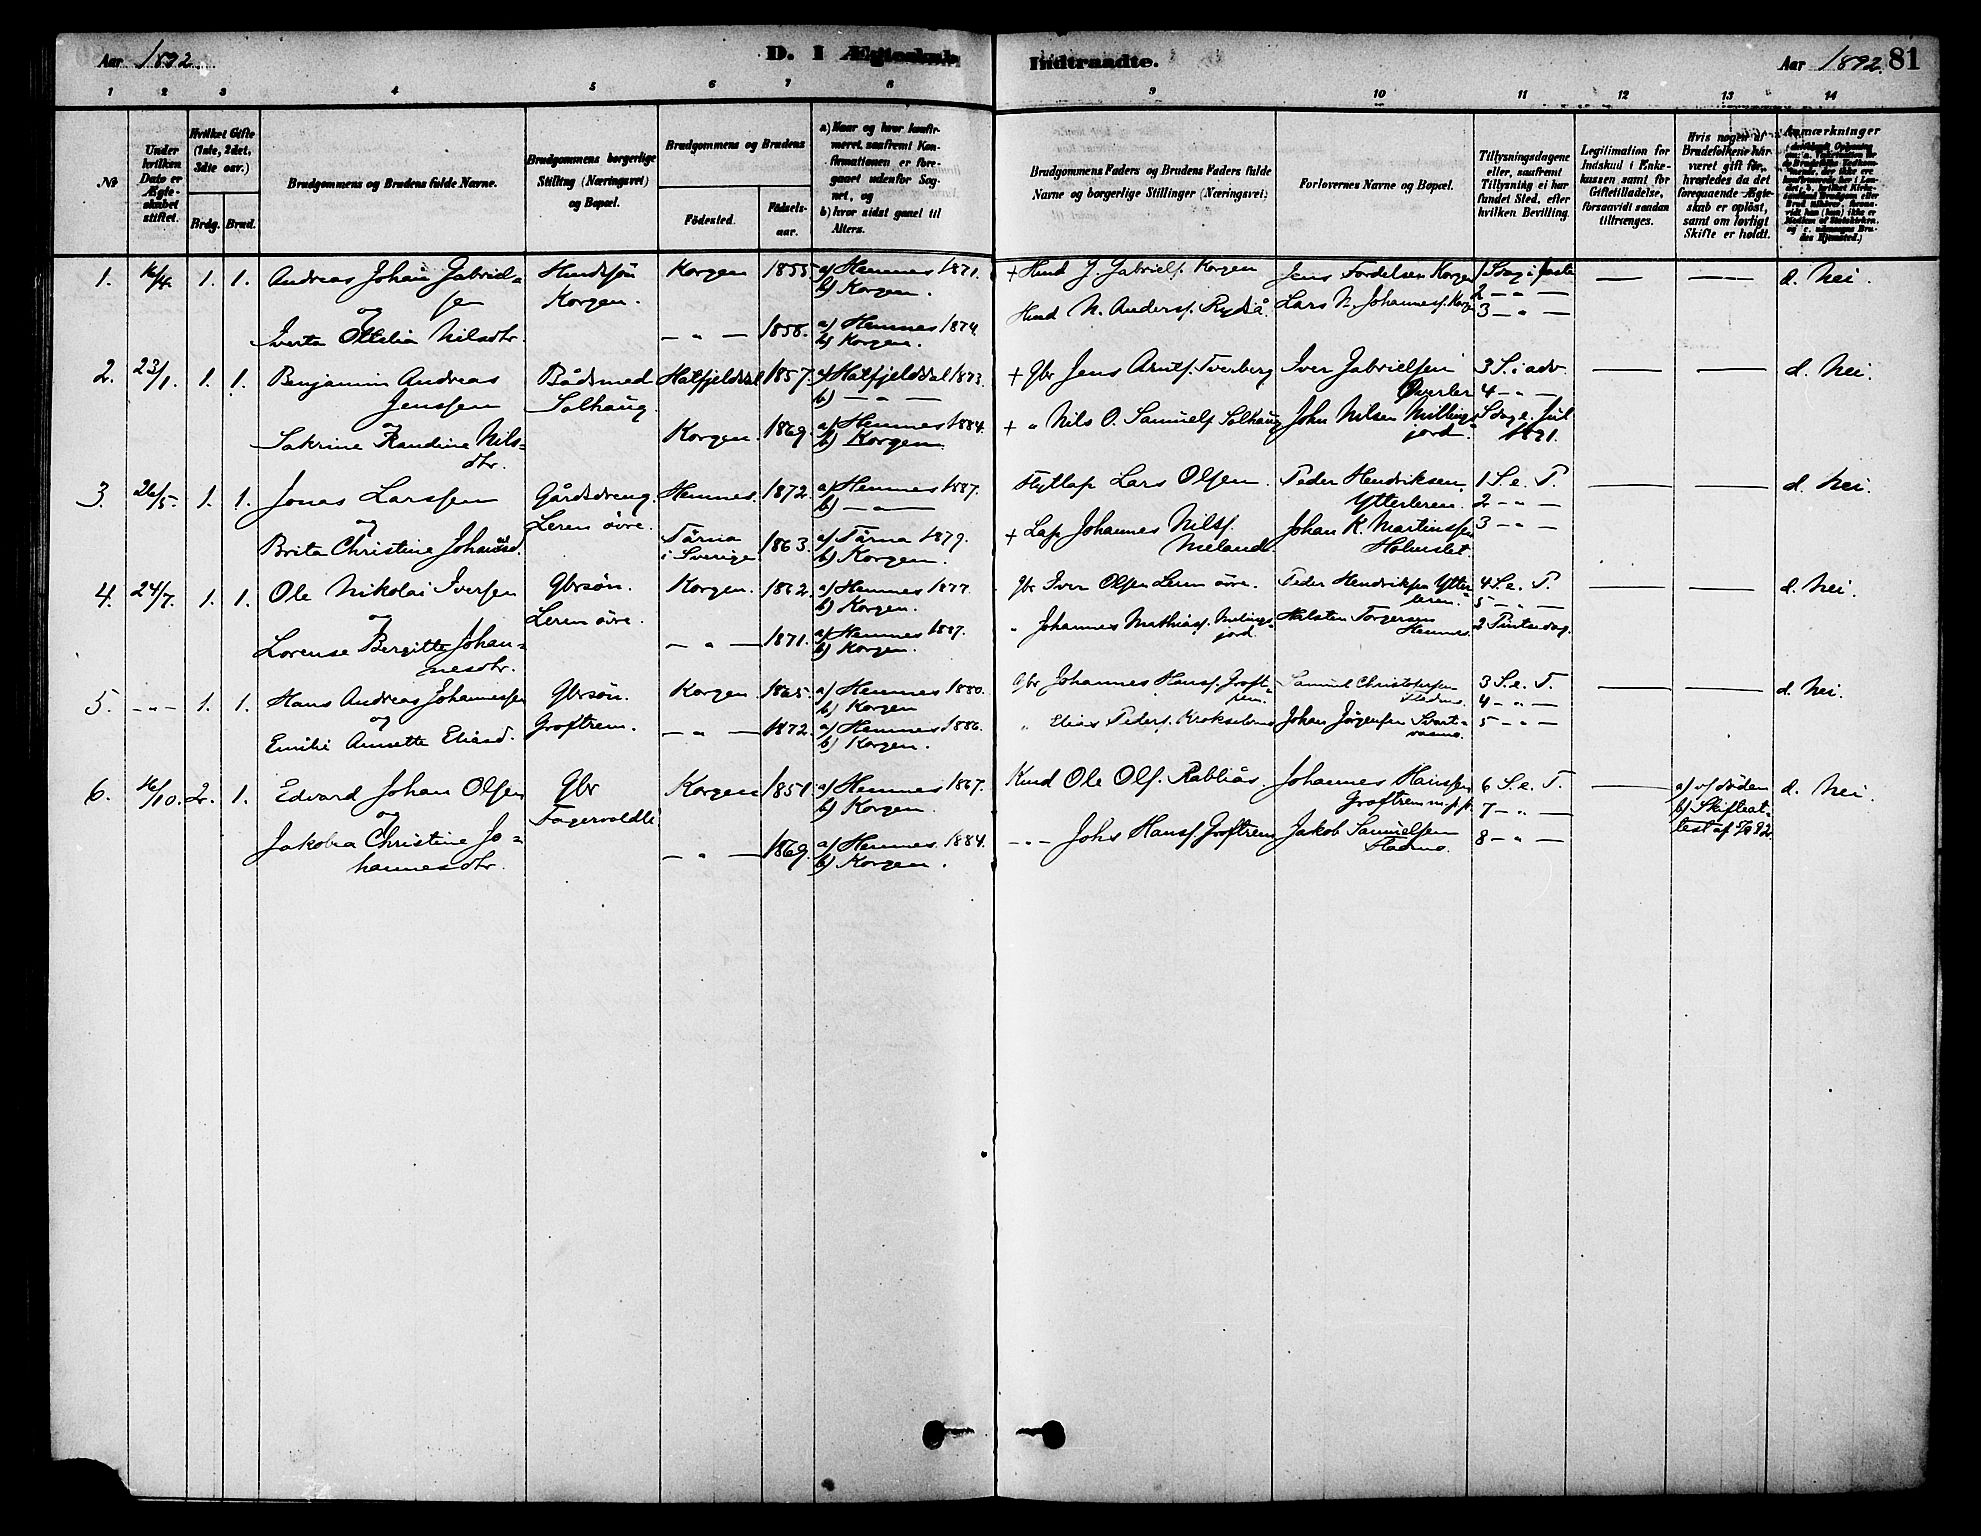 Aar 1892.
D. I Ægteskab
Indtraadte.
Aar 1892. 81
1 2 3 4 5 6 7 8 9 10 11 12 13 14
No
Under hvilken Dato er Ægteskabet stiftet.
Hvilket Gifte (1ste, 2det, 3die osv.)
Brdg. Brud.
Brudgommens og Brudens fulde Navne.
Brudgommens borgerlige Stilling (Næringsvei) og Bopæl.
Brudgommens og Brudens
Födested.
Födselsaar.
a) Naar og hvor konfirmeret, saafremt Konfirmationen er foregaaet udenfor Sognet, og
b) hvor sidst gaaet til Alters.
Brudgommens Faders og Brudens Faders fulde Navne og borgerlige Stillinger (Næringsvei)
Forlovernes Navne og Bopæl.
Tillysningsdagene eller, saafremt Tillysning ei har fundet Sted, efter hvilken Bevilling.
Legitimation for Indskud i Enkekassen samt for Giftetilladelse, forsaavidt saadan tiltrænges.
Hvis nogen af Brudefolkene har været gift för, hvorledes da det foregaaende Ægteskab er oplöst, samt om lovligt Skifte er holdt.
Anmærkninger
1. 16/4. 1. 1. Andreas Johan Gabrielsen
og
Iverta Ottelia Nilsdtr.
Husmdsøn
Korgen.
Korgen 1855 a) Hemnes 1871.
b) Korgen.
— " — 1858. a) Hemnes 1874.
b) Korgen.
+ Husmd J. Gabriels. Korgen
Husmd N. Anders. Rydså
Jens Fordelsen Korgen
Lars N. Johanness. Korg.
1 Sdag i faste
2 — " —
3 — " —
— — d. Nei.
2. 23/1. 1. 1. Benjamin Andreas
Jenssen
og
Sakrine Randine Nilsdtr.
Bådsmed
Solhaug.
Hatfjelddal 1857. a) Hatfjelddal 1873.
b) — " —
Korgen. 1869. a) Hemnes 1884.
b) Korgen
+ Gbr Jens Arnts. Tverberg
+ " Nils O. Samuels. Solhaug
Iver Gabrielsen
Øverler
John Nilsen Millingjord.
3 S. i adv.
4 — " —
Sdag e. Jul
1891.
— — d. Nei.
3. 26/5. 1. 1. Jonas Larssen
og
Brita Christine Johansd.
Gårdsdreng.
Leren øvre.
Hemnes. 1872. a) Hemnes 1887.
b) — " —
Tärna
i Sverige 1863. a) Tärna 1879.
b) Korgen.
Flytlap Lars Olsen.
+ Lap Johannes Nilss.
Meland.
Peder Hendriksen.
Ytterleren.
Johan K. Martinssen
Holmslet.
1 S. e. P.
2 — " —
3 — " —
— — d. Nei.
4. 24/7. 1. 1. Ole Nikolai Iversen
og
Lorense Bergitte Johannesdtr.
Gbrsön.
Leren øvre.
Korgen. 1862. a) Hemnes 1877.
b) Korgen.
— " — 1871. a) Hemnes 1887.
b) Korgen.
Gbr Iver Olsen Leren øvre.
" Johannes Mathias. Melingsjord.
Peder Hendriksen Ytterleren.
Halsten Torgersen
Hemnes.
4 S. e. P.
5 — " —
2 Pintsedag.
— — d. Nei.
5. — " — 1. 1. Hans Andreas Johannessen
og
Emilie Annette Eliasd.
Gbrsön.
Groftrem.
Korgen. 1865. a) Hemnes 1880.
b) Korgen
— " — 1872. a) Hemnes 1886.
b) Korgen.
Gbr Johannes Hanss. Groftrem.
" Elias Peders. Krokselvmo
Samuel Christophersen
Stadmo.
Johan Jörgensen Svartvasmo.
3 S. e. T.
4 — " —
5 — " —
— — d. Nei.
6. 16/10. 2. 1. Edvard Johan Olsen
og
Jakobea Christine Johannesdtr.
Gbr
Fagervoldli
Korgen 1851 a) Hemnes 1867.
b) Korgen.
— " — 1869. a) Hemnes 1884.
b) Korgen.
Husmd Ole Ols. Rabliås.
— " — Johs Hanss. Groftrem
Johannes Hanssen
Groftrem m.p.p.
Jakob Samuelsen
Stadmo.
6 S. e. T.
7 — " —
8 — " —
—
a) v/ döden
b) Skifteattest af 5/9 92.
d. Nei.